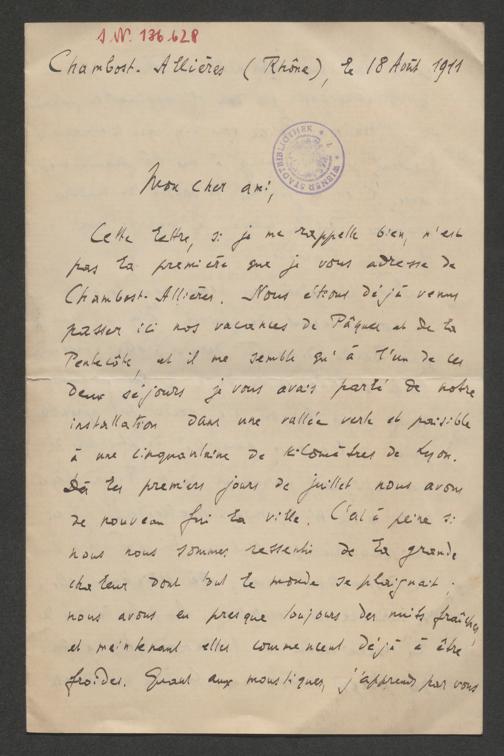 J.N. 136.628
Chambost-Allières (Rhône), le 18 Août 1911
WIENER STADTBIBLIOTHEK
Mon cher ami,
Cette lettre, si je me rappelle bien, n'est
pas la première que je vous adresse de
Chambost-Allières. Nous étions déjà venus
passer ici nos vacances de Pâques et de la
Pentecôte, et il me semble qu'à l'un de ces
deux séjours je vous avais parlé de notre
installation dans une vallée verte et paisible
à une cinquantaine de kilomètres de Lyon.
Dès les premiers jours de juillet nous avons
de nouveau fui la ville. C'est à peine si
nous nous sommes ressentis de la grande
chaleur dont tout le monde se plaignait ;
nous avons eu presque toujours des nuits fraîches,
et maintenant elles commencent déjà à être
froides. Quant aux moustiques, j'apprends par vous